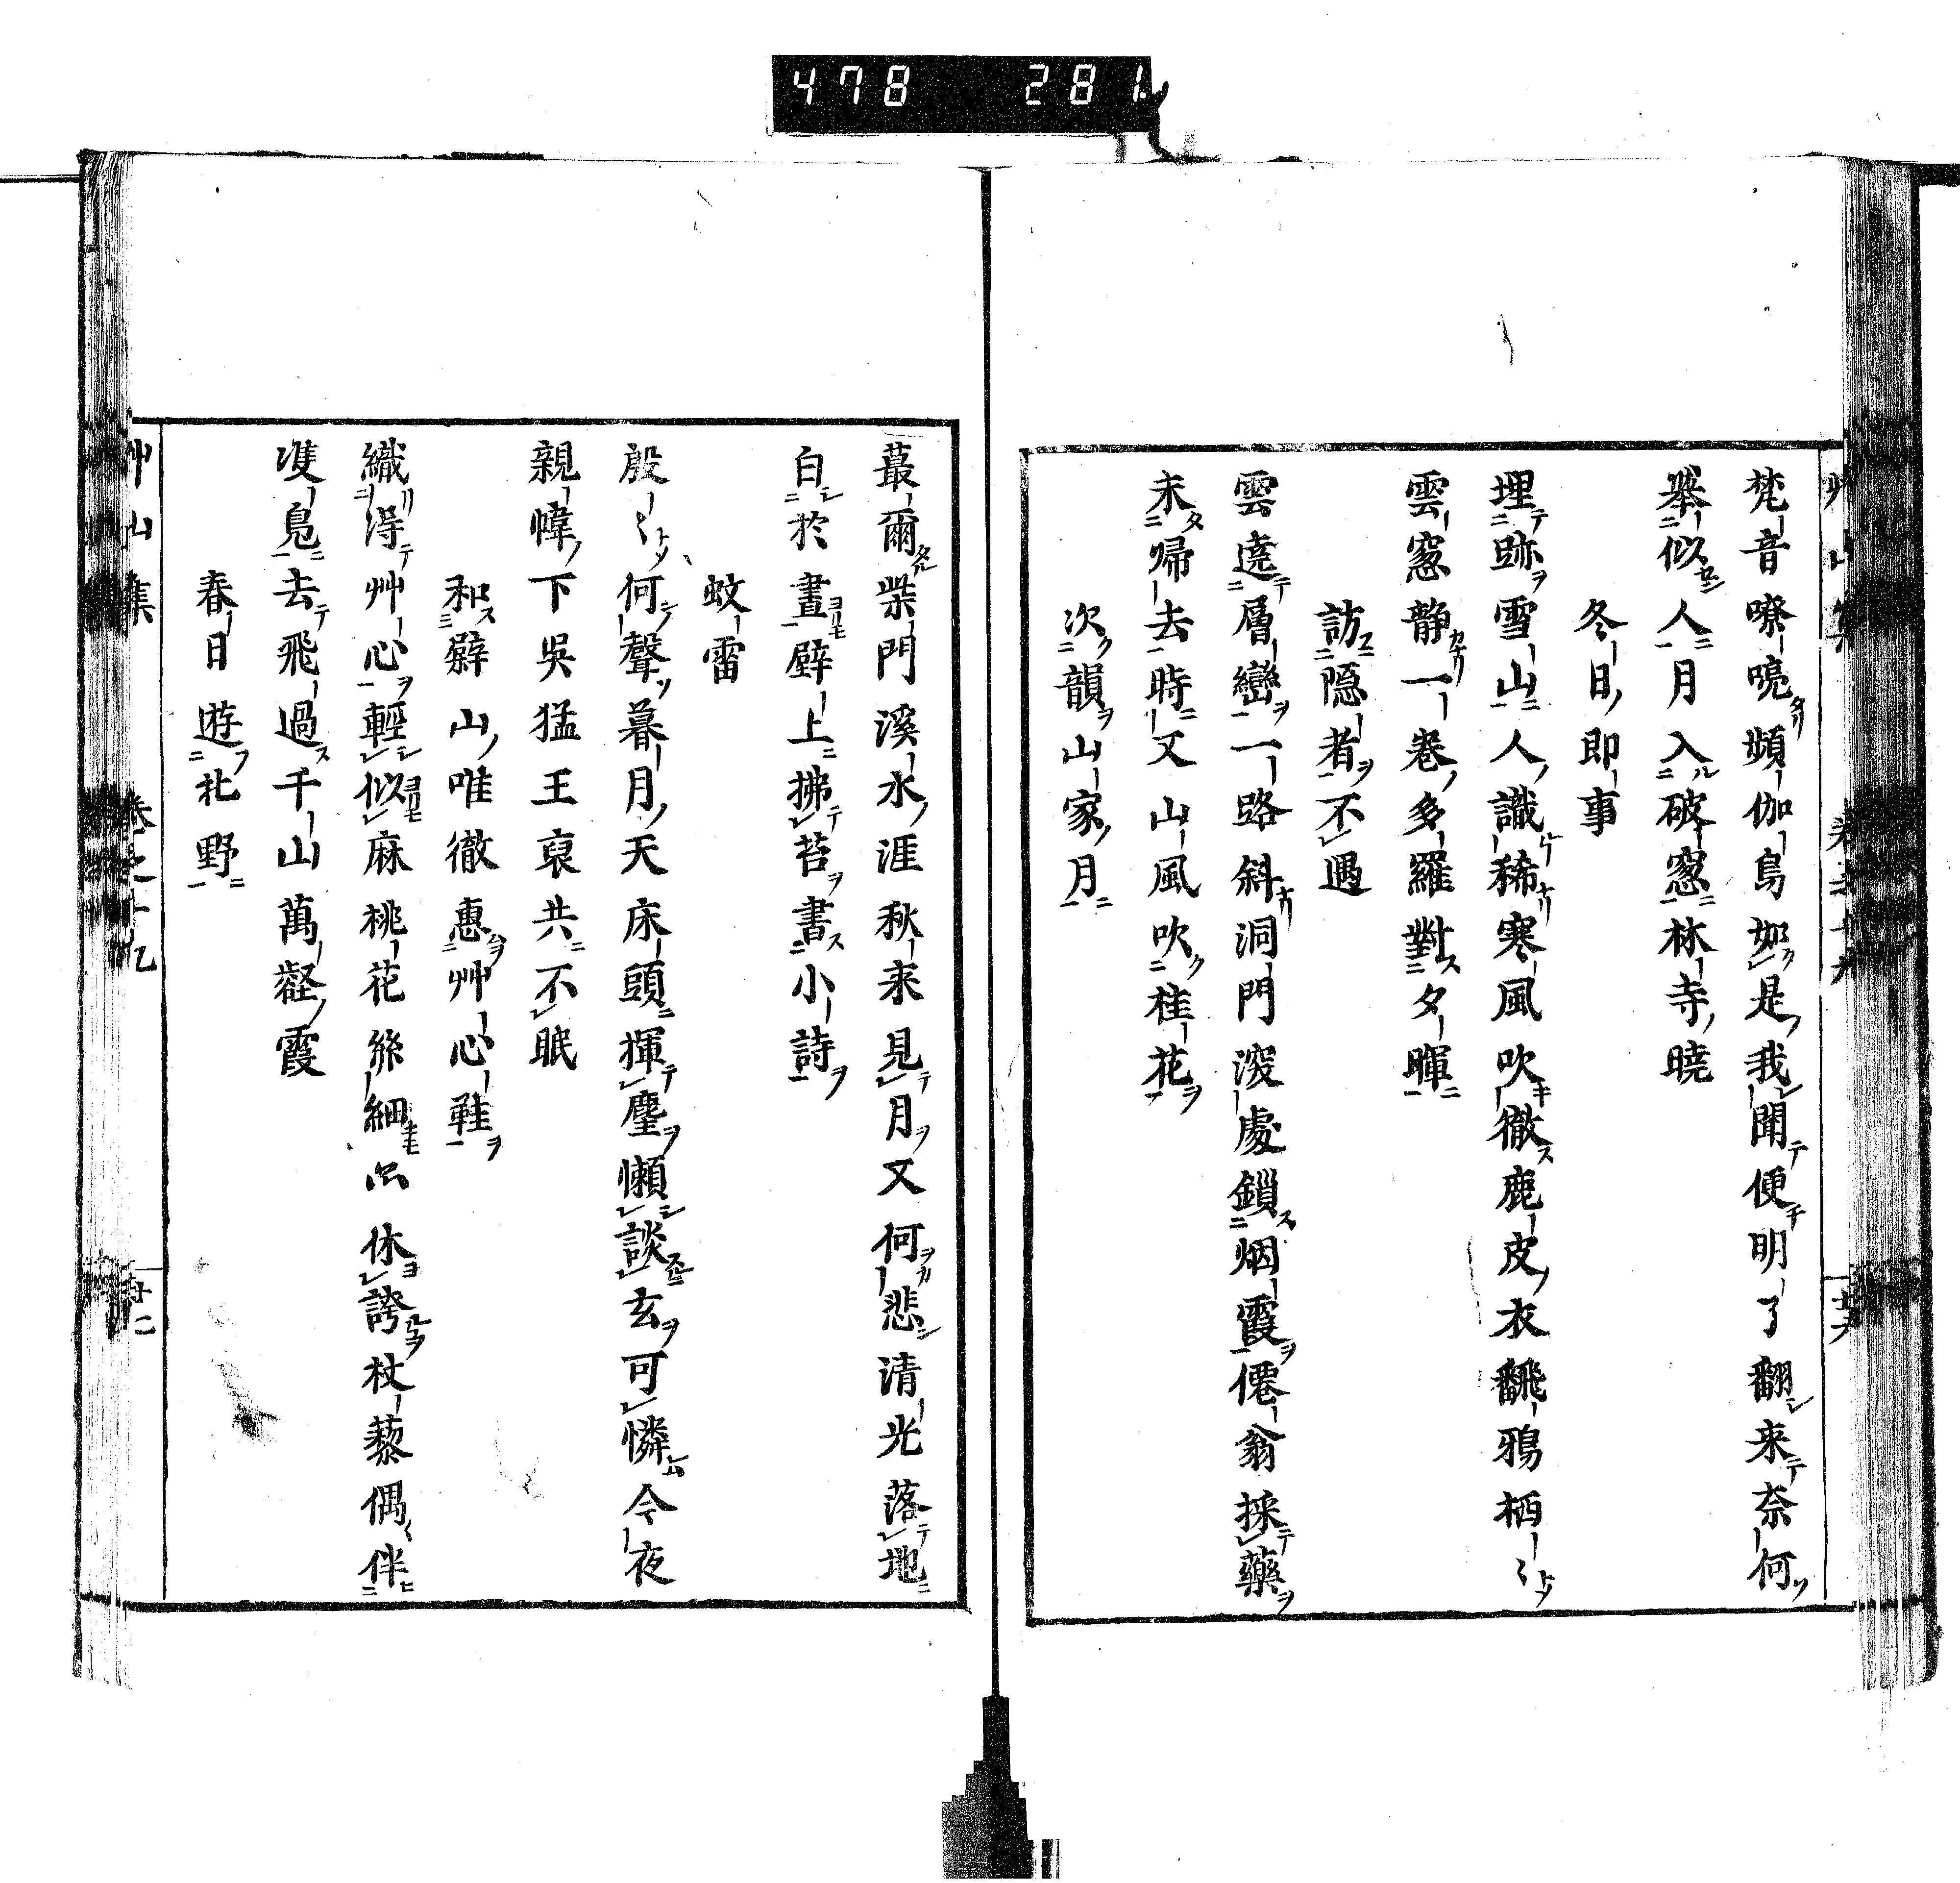 478 281
梵音嘹喨頻伽鳥如是我聞便明了翻来奈何
舉似人月入破窓林寺曉
冬日即事
埋跡雪山人識稀寒風吹徹鹿皮衣翻鴉栖〻
雲窓静一巻多羅對夕暉
訪隠者不遇
雲遶層巒一路斜洞門深處鎖烟霞僊翁採藥
未帰去時又山風吹桂花
次韻山家月
蕞爾柴門溪水涯秋来見月又何悲清光落地
白於晝壁上拂苔書小詩
蚊雷
殷〻何聲暮月天床頭揮麈懶談玄可憐今夜
親幃下吳猛王裒共不眠
和癖山唯徹惠艸心鞋
織得艸心輕似麻桃花絲細品休誇杖藜偶伴
雙鳧去飛過千山萬壑霞
春日遊北野
艸山集 巻之十九